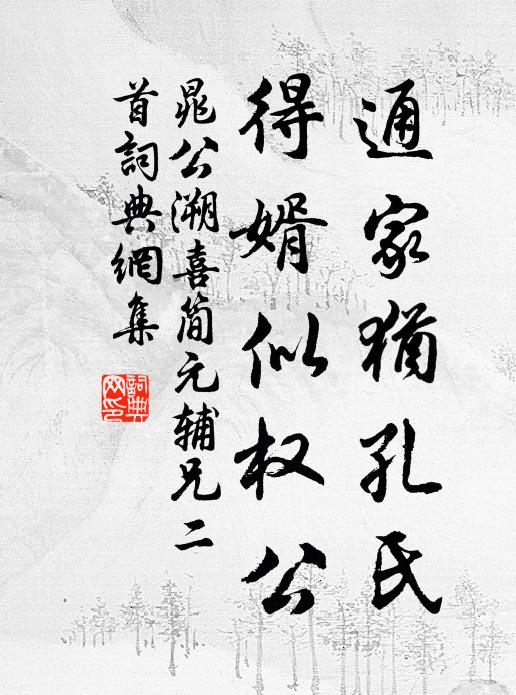 通家犹孔氏
得婿似权公
晁公溯喜简元辅兄二
首词典網集
詞典
网印